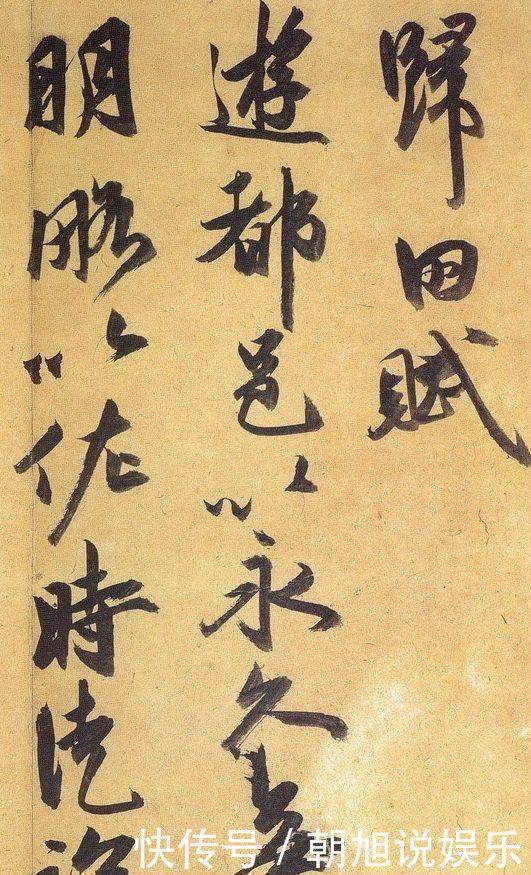 歸田賦
遊都邑以永久
明略以佐時
快传号 / 朝旭说娱乐